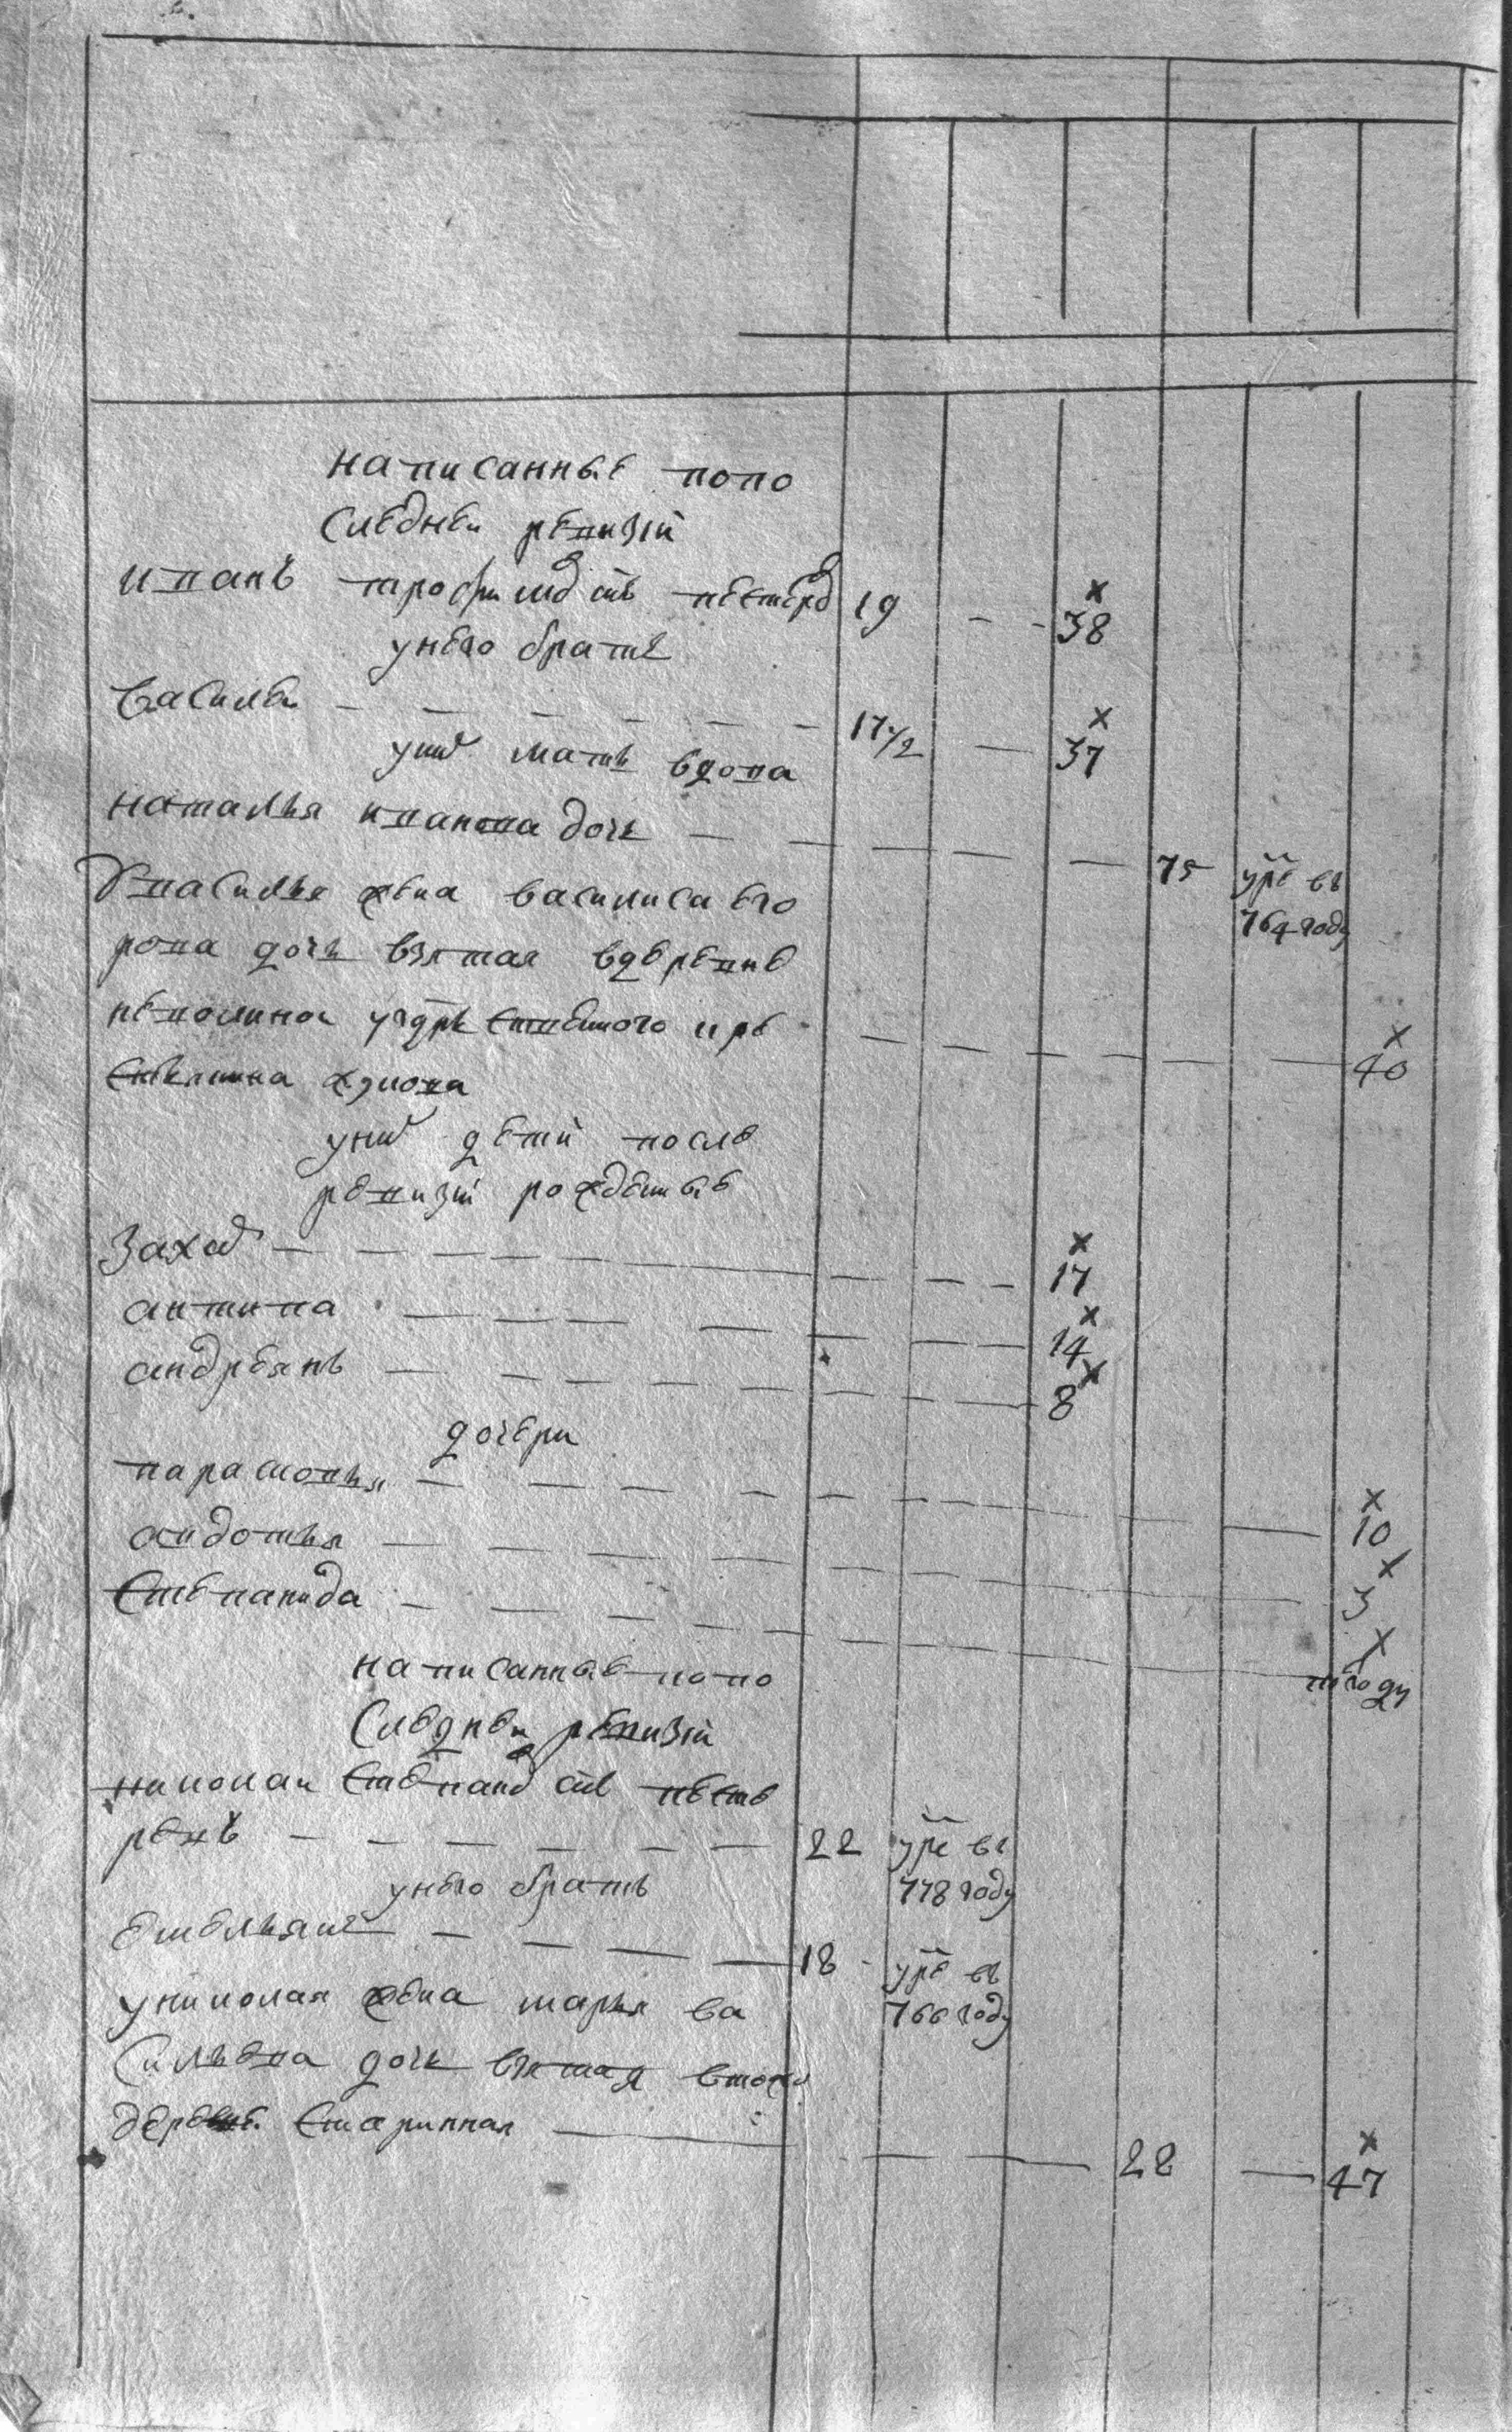 написанные попо
следней ревизiи
иванъ трофимов снъ нестеров 19 - - 38
у него братъ
василей - - - 17 1/2 - 37
у них мать вдова
наталья иванова дочь - - - 75 умре въ
764 году
У василья жена василиса его
рова дочь взятая в деревне
умершего кре - - - 40
стьянина
у них дети после
ревизiи рожденные
Захар - - - 17
антипа - - - 14
андреянъ - - - 8
дочери
парамонья - - - 10
авдотья - - - 3
степанида - - - году
написанные попо
следней ревизiи
николаи степанов снъ несте
ревъ - - - 22 умре въ
778 году
у него братъ
емельянъ - - - 18 - умре въ
766 году
у николая жена марья ва
сильева дочь взятая в той же
деревне старинная - - - 28 - 47